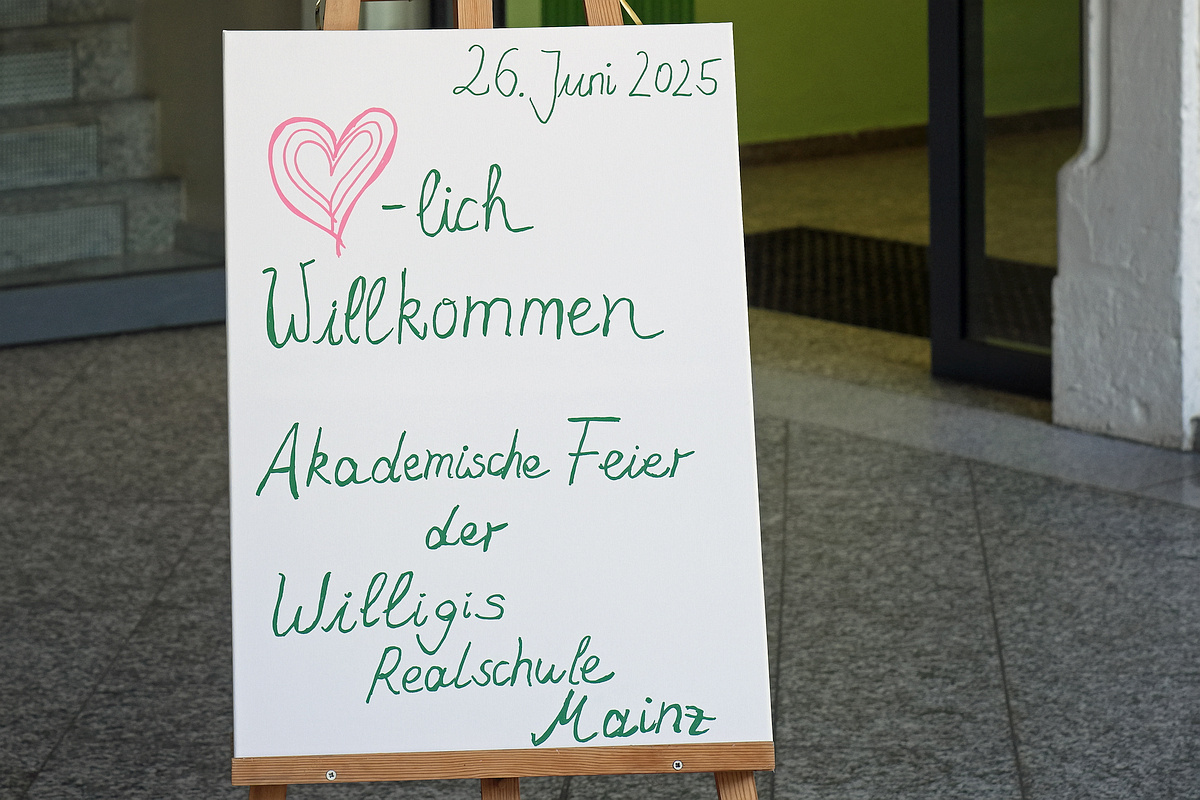 26. Juni 2025
-lich
Willkommen
Akademische Feier
der
Willigis
Realschule
Mainz